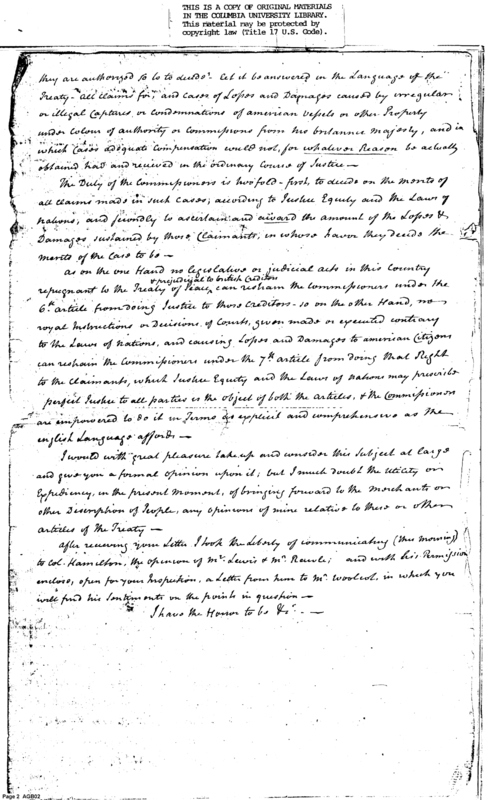 THIS IS A COPY OF ORIGINAL MATERIALS
IN THE COLUMBIA UNIVERSITY LIBRARY.
This material may be protected by
copyright law (Title 17 U.S. Code).
they are authorized so to decide? Let it be answered in the Language of the
Treaty—all claims for, and Cases of Losses and Damages caused by irregular
or illegal Captures or Condemnations of american vessels or other Property
under colour of authority or Commissions from his britannic majesty, and in
which Cases adequate Compensation could not, for whatever Reason be actually
obtained had and recieved in the ordinary Course of Justice—
The Duty of the Commissioners is twofold—first, to decide on the merits of
all claims made in such Cases, according to Justice Equity and the Laws of
nations, and secondly to ascertain and award the amount of the Losses &
Damages sustained by those Claimants, in whose favor they decide the
merits of the Case to be—
as on the one Hand no legislative or judicial acts in this Country
& prejudicial to british Creditors
repugnant to the Treaty of Peace, can restrain the Commissioners under the
6th. article from doing Justice to those Creditors—so on the other Hand, no
royal Instructions or Decisions of Courts, given made or executed contrary
to the Laws of nations, and causing Losses and Damages to american Citizens
can restrain the Commissioners under the 7th. article from doing that Right
to the Claimants, which Justice Equity and the Laws of nations may prescribe
perfect Justice to all parties is the object of both the articles, & the Commissioners
are empowered to do it in Terms as explicit and comprehensive as the
english Language affords—
I would with great pleasure take up and consider this Subject at large
and give you a formal opinion upon it; but I much doubt the Utility or
Expediency, in the present moment, of bringing forward to the merchants or
other Description of People, any opinions of mine relative to these or other
articles of the Treaty—
after receiving your Letter I took the Liberty of communicating (this morning)
to Col. Hamilton, the opinion of Mr. Lewis & Mr. Rawle; and with his Permission
enclose, open for your Inspection, a Letter from him to Mr. Woolcot, in which you
will find his Sentiments on the points in question—
I have the Honor to be &c.—
Page 2 AGB02